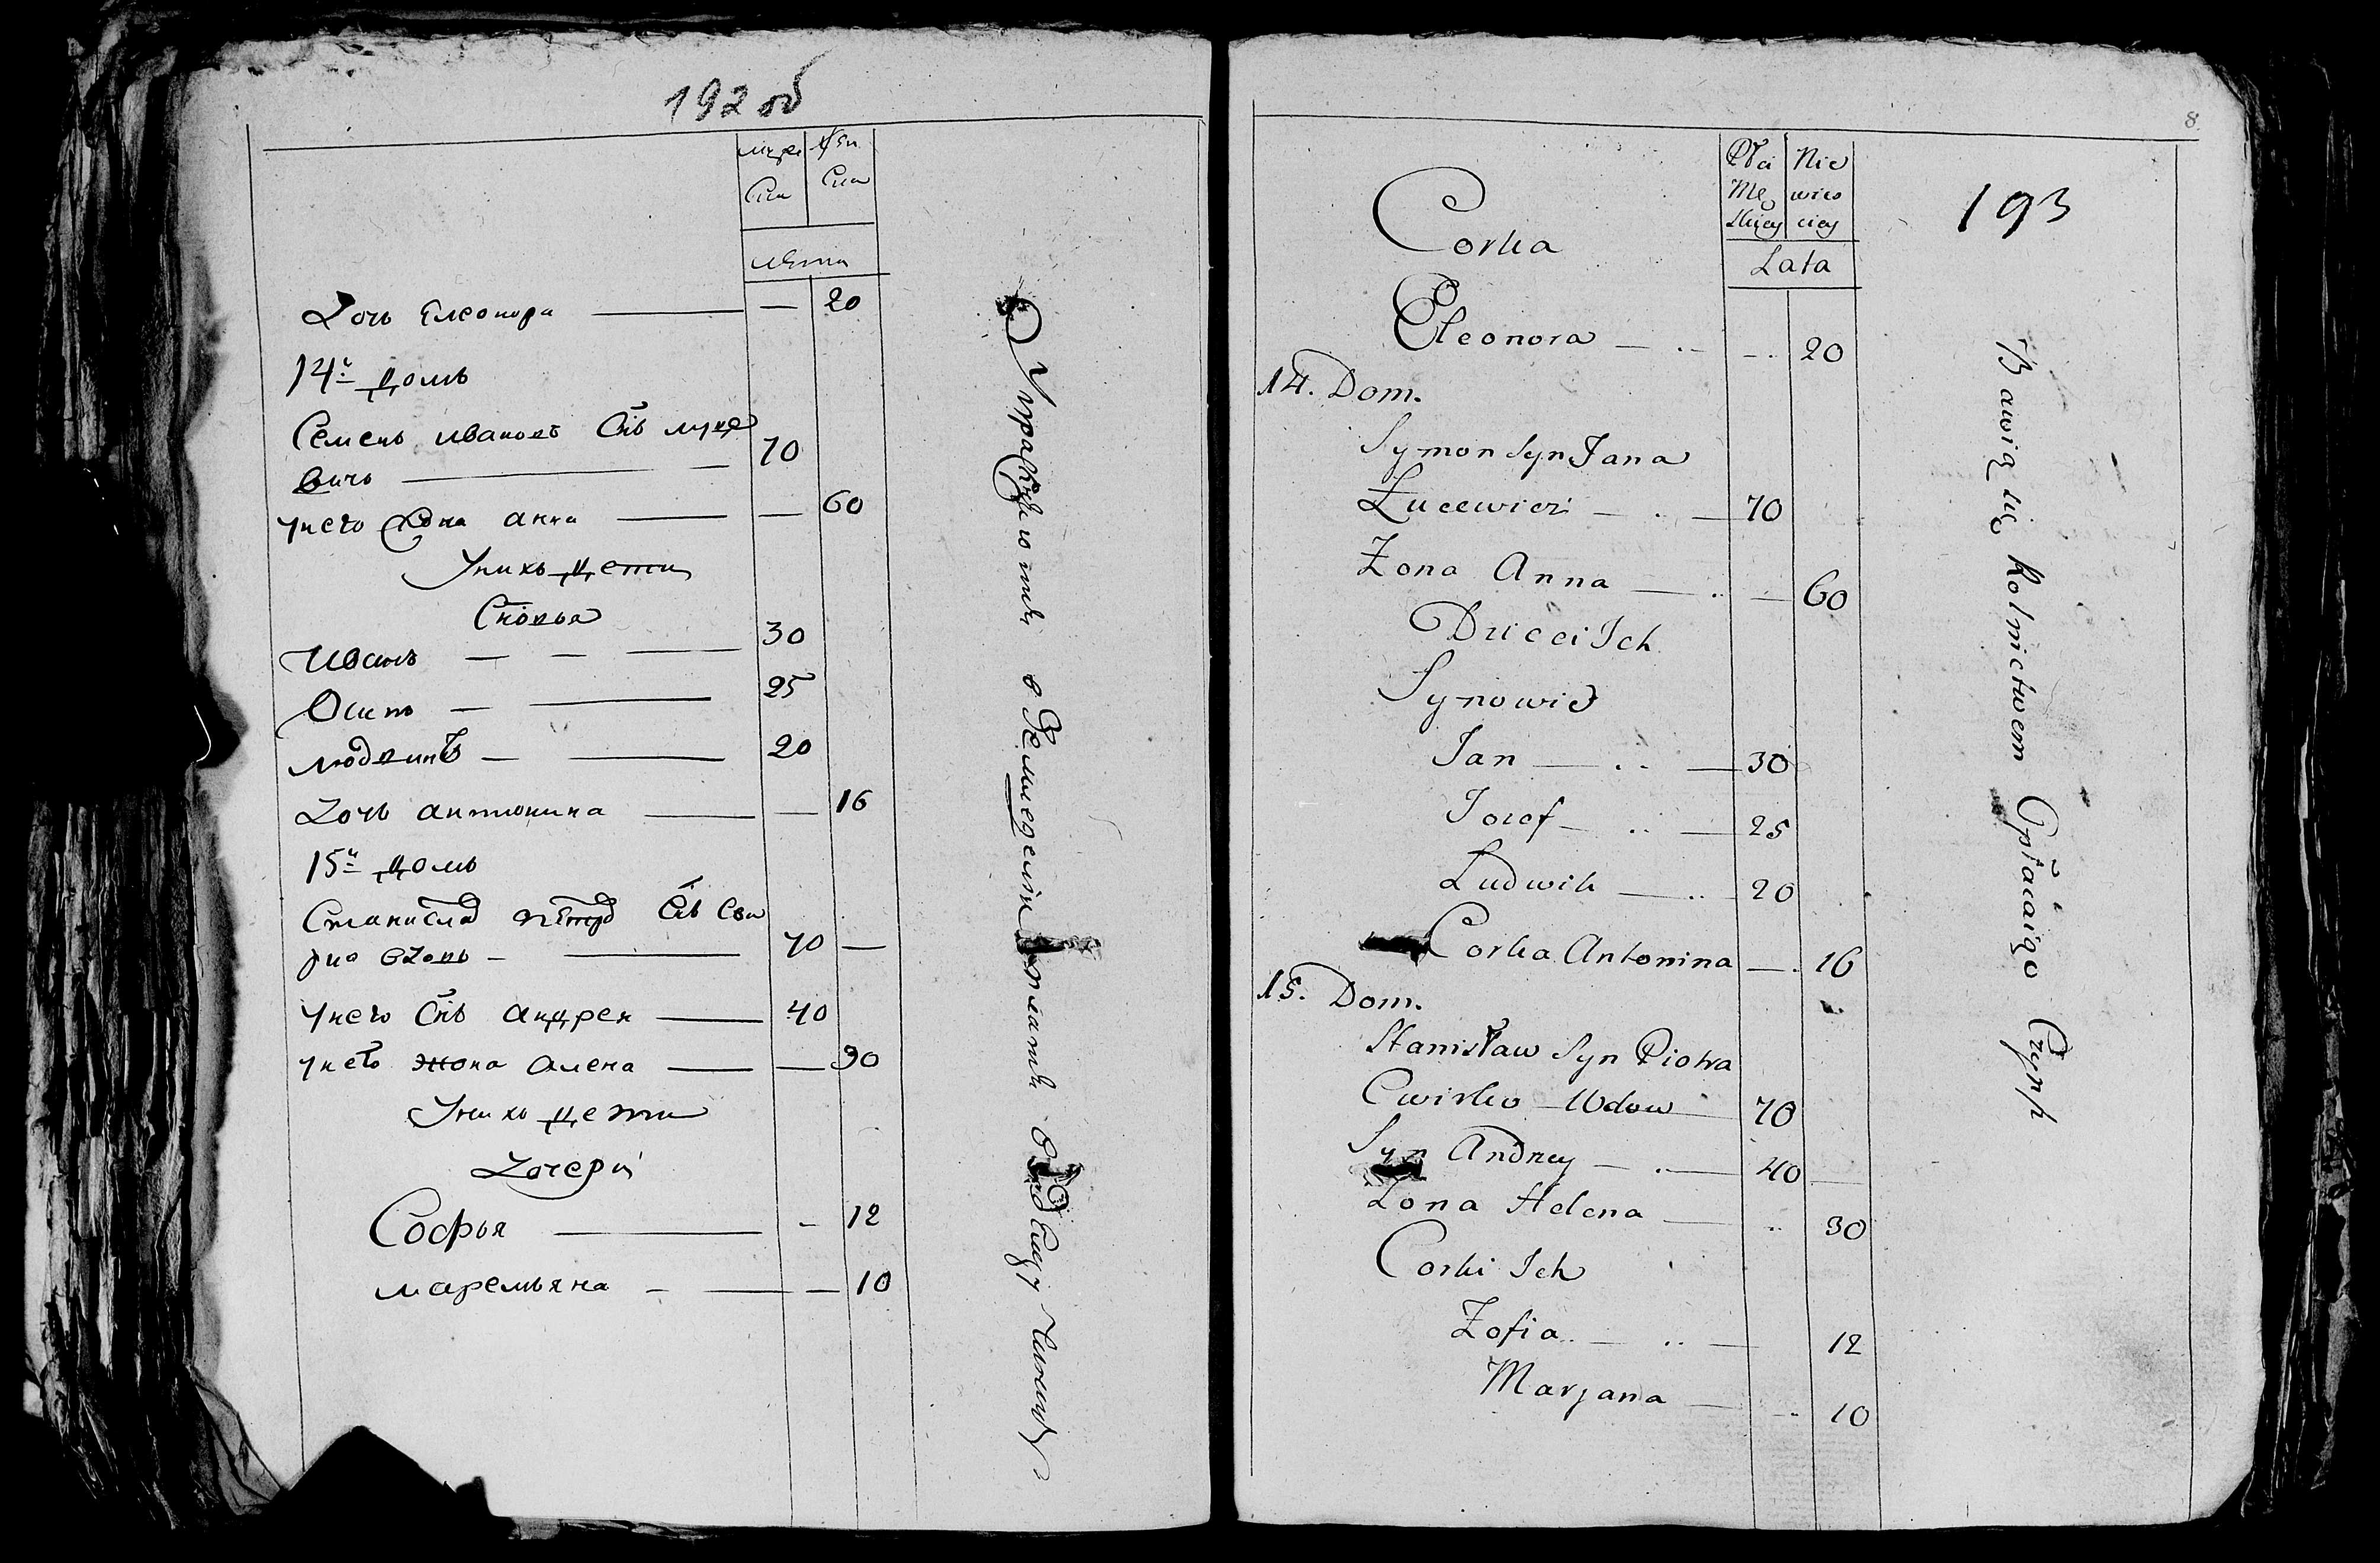 192 об
муже
ска
жен
ска
лѣта
Дочь Елеонора — 20
14й домъ
Семенъ Ивановъ Снъ Луце
вичь — 70
унего жона анна — 60
Унихъ дети
Сновья
Иванъ — 30
Осипъ — 25
людвикъ — 20
Дочь антонина — 16
15й домъ
Станиславъ петровъ Снъ
70 —
унего Снъ андреи — 40
унего жона алена — 30
Унихъ дети
Дочери
Софья — 12
маремьяна — 10
Упражняютца в Земледелии платят
8.
193
Płci
Mę
skiey
Nie
wieś
ciey
Lata
Corka
Eleonora — 20
14. Dom.
Symon Syn Jana
Łucewicz — 70
Zona Anna — 60
Dzieci Ich
Synowie
Jan — 30
Jozef — 25
Ludwik — 20
Corka Antonina — 16
15. Dom.
Stanisław Syn Piotra
Cwirko Wdow 70
Syn Andrzey — 40
Zona Helena — 30
Corki Ich
Zofia — 12
Maryana — 10
Bawią się Rolnictwem Opłacaiąc Czynsz